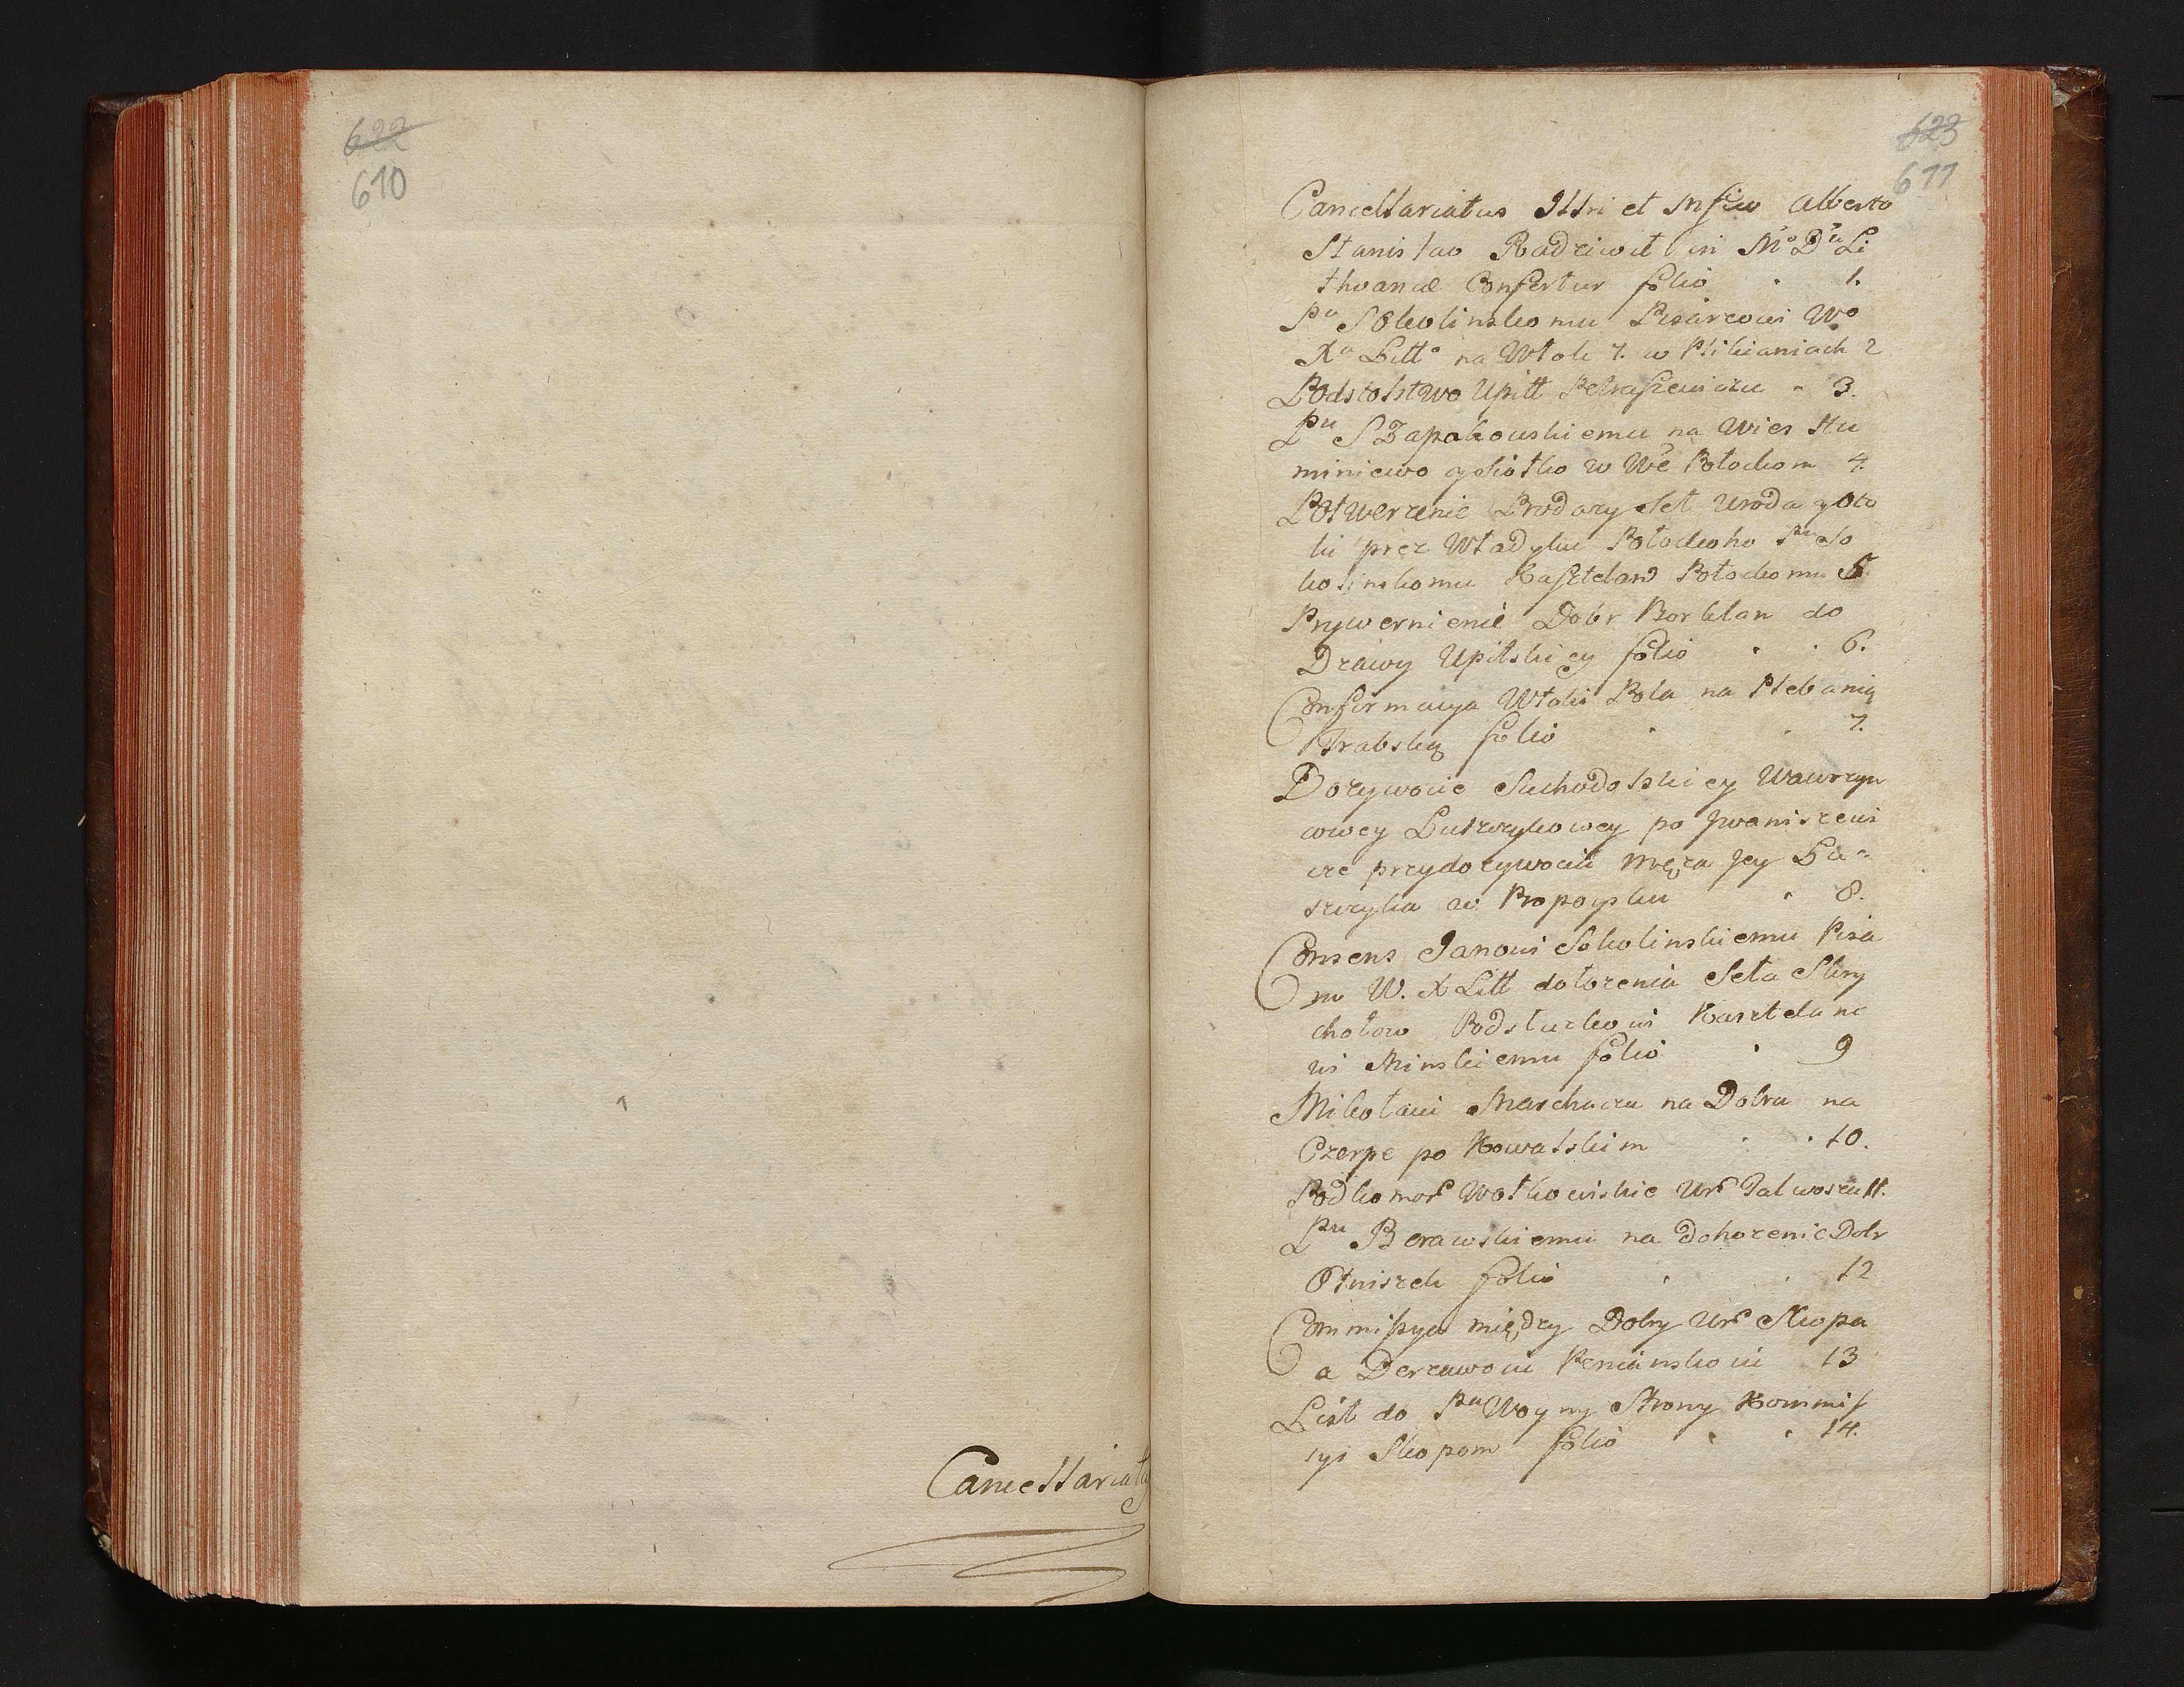 622
610
Cancellariatus
623
611
Cancellariatus Illri et Msiw Alberto
Stanislao Radziwił in Mo Du Li
thvaniæ Confertur folio 1.
Pu Sokolinskomu Pisarcowi Wo
Xa Litto na Włok 7. w Plikianiach 2
Podstolstwo Upitt Petraszewiczu 3.
Pu Szapakowskiemu na Wies Hu
miniewo y Siołko w We Połockom 4.
Potwerzenie Prodazy Seł Uroda y Oto
ki prez Władyku Połockoho Pu So
kolinskomu Kasztelano Połockomu 5.
Prywernienie Dobr Borklan do
Dzawy Upitskiey folio 6.
Confirmacya Włoki Pola na Plebanią
Trabską folio 7.
Dozywocie Suchodolskiey Wawrzyn
cowey Lutzykowey po Jwaniszewi
cze przy dozywociu męza Jey Lu
szczyka w Propoysku 8.
Consens Janowi Sokolinskiemu Pisa
rw W. X Litt dolozenia Seła Skry
chołow Podsturkowi Kasztelano
wi Minskiemu folio 9
Mikołaui Marchaczu na Dobra na
Czerpe po Kowalskim 10.
Podkomors Wołkowiskie Urs Jalwoszu 11.
Pu Berawskiemu na dohozenie Dobr
Otniszek folio 12
Commissya między Dobry Urs Skopa
a Derzawoiu Penianskoiu 13
List do Pu Woyny Strony Kommis
syi Skopom folio 14.